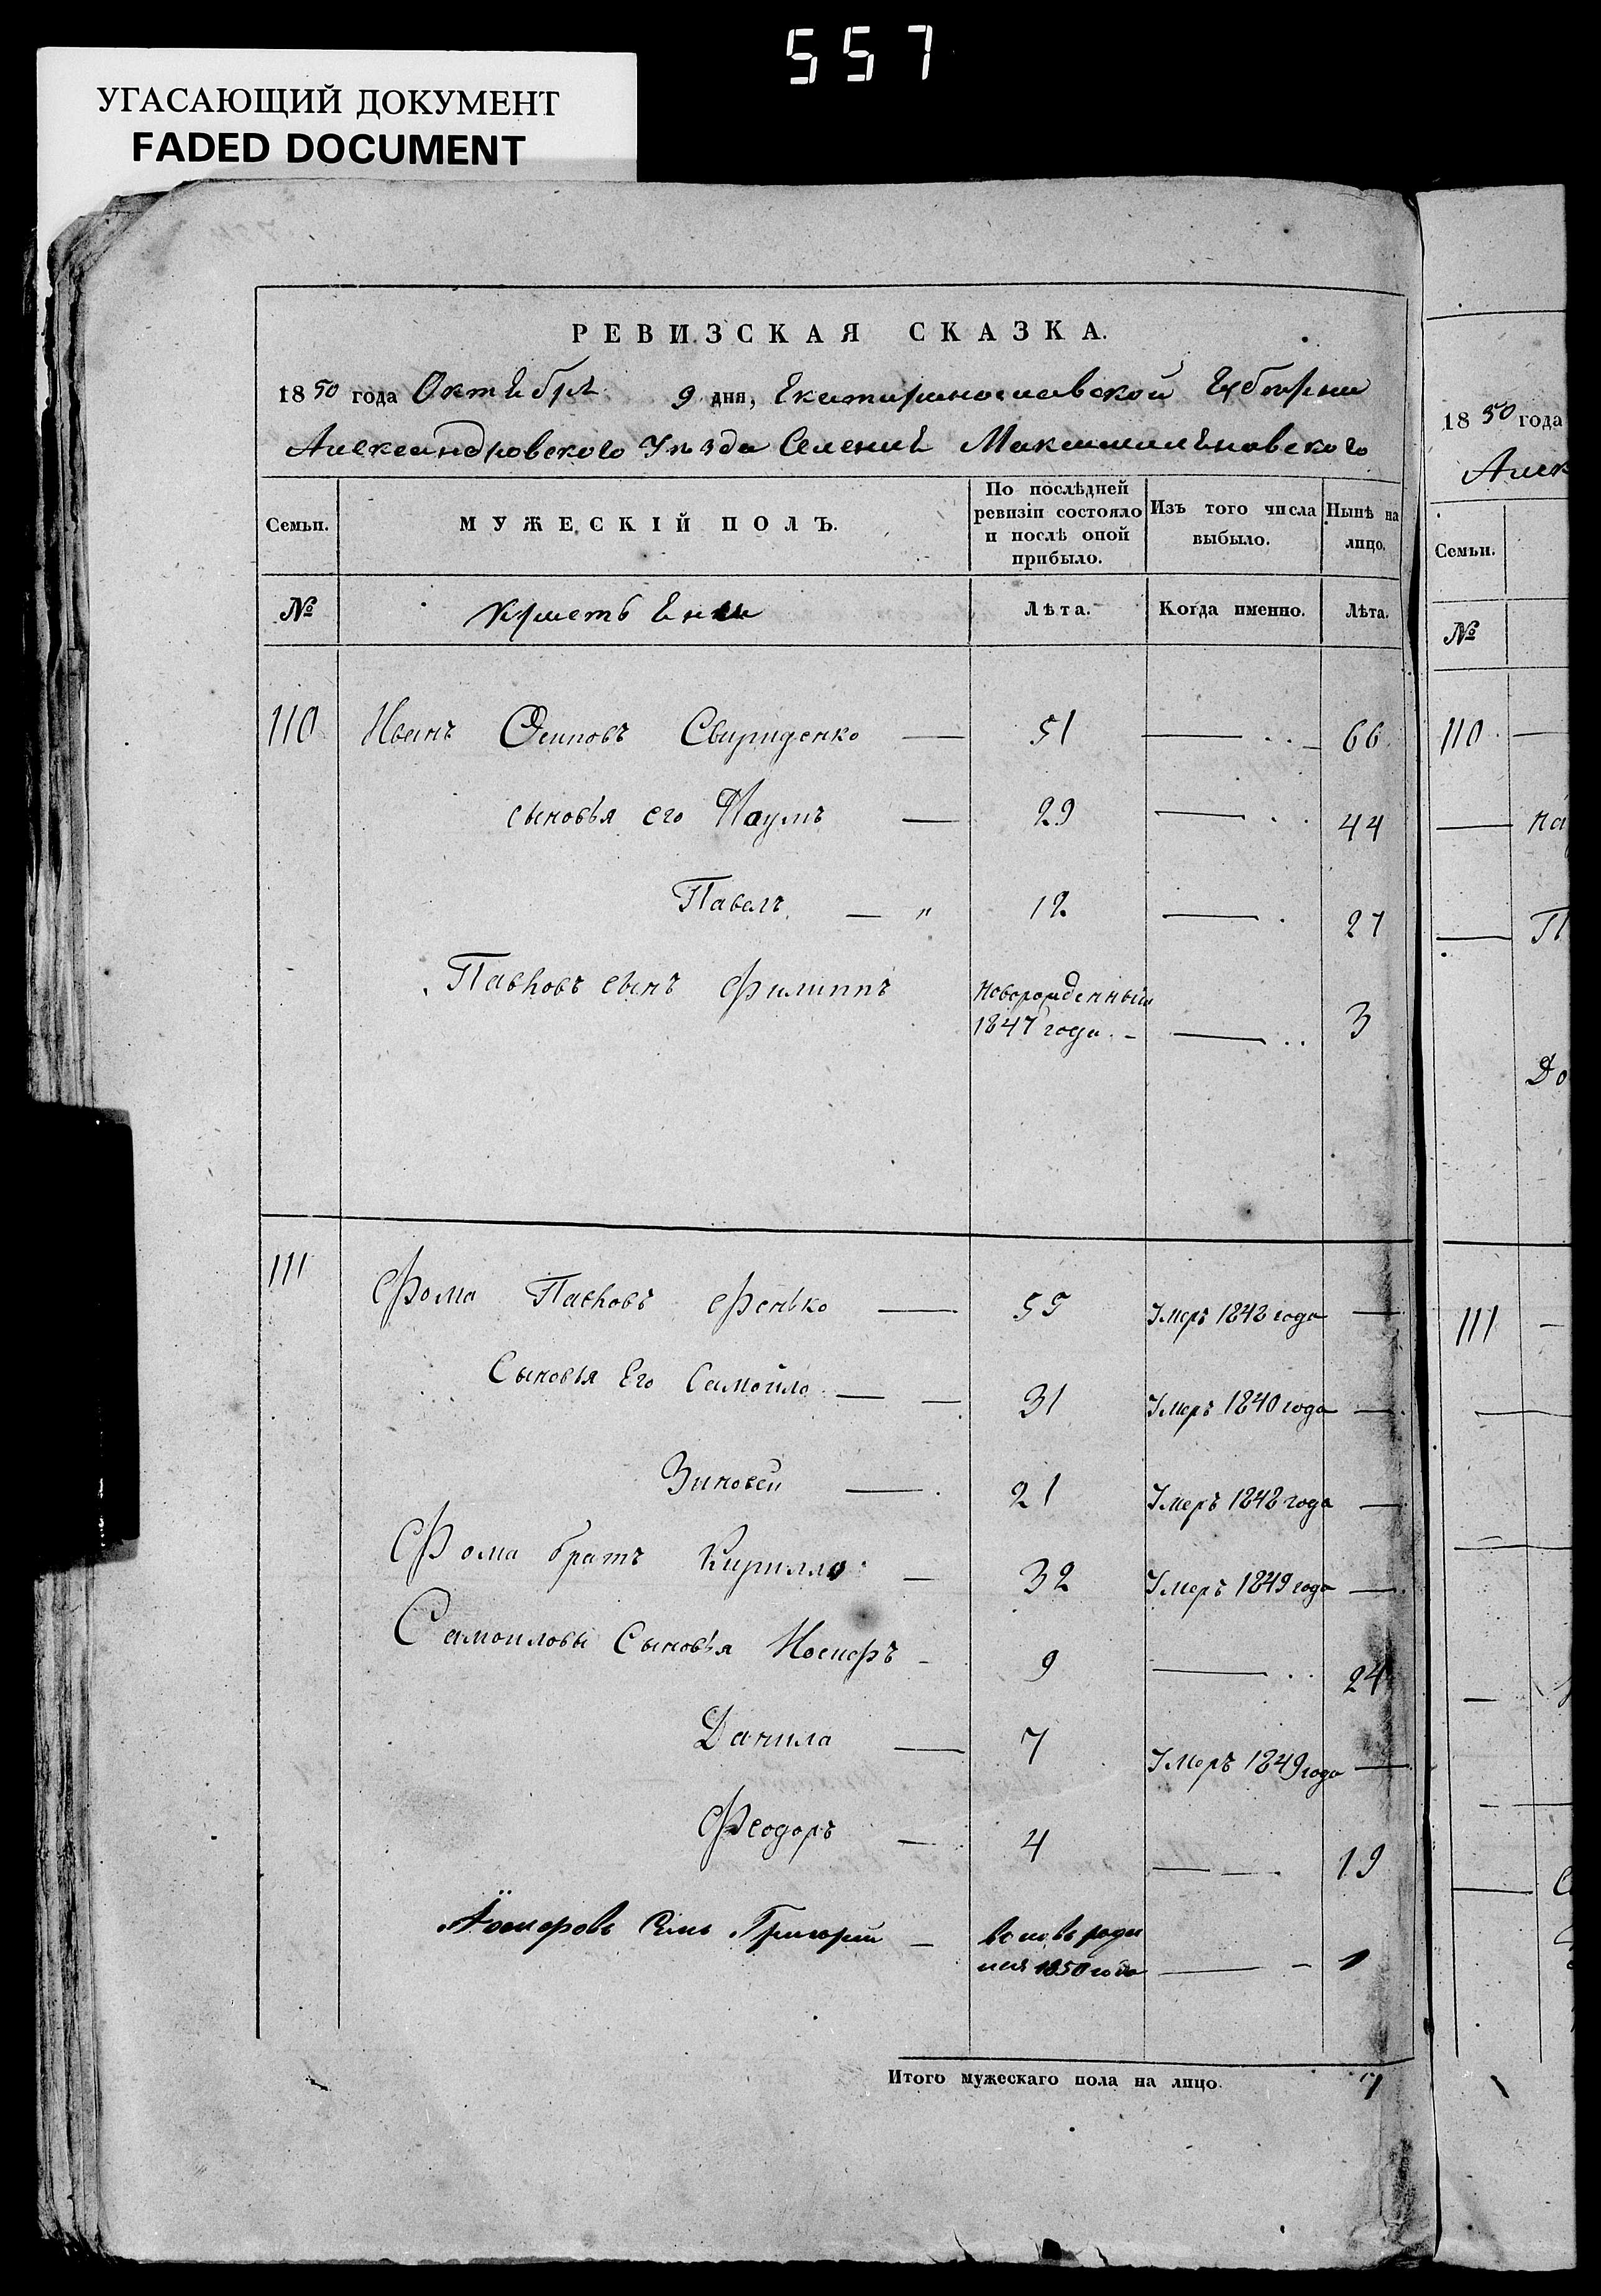 557
УГАСАЮЩИЙ ДОКУМЕНТ
FADED DOCUMENT
РЕВИЗСКАЯ СКАЗКА.
1850 года Октября 9 дня, Екатеринославской Губернии
Александровского Уѣзда Селенія Максимильяновского
Семьи. МУЖЕСКІЙ ПОЛЪ. По послѣдней ревизіи состояло и послѣ оной прибыло. Изъ того числа выбыло. Нынѣ на лицо.
№ Лѣта. Когда именно. Лѣта.
110 Иванъ Осиповъ Свириденко — 51 — 66
сыновья его Наумъ — 29 — 44
Павелъ — " 12 — 27
Павловъ сынъ Филиппъ новорожденный
1847 года — 3
111 Фома Павловъ Фенько — 55 Умеръ 1848 года —
Сыновья Его Самойло — — 31 Умеръ 1840 года —
Зиновей — 21 Умеръ 1848 года —
Фома братъ Кирилло — 32 Умеръ 1849 года —
Самойловы Сыновья Иосифъ - 9 — 24
Данила — 7 Умеръ 1849 года —
Феодоръ — 4 — 19
Григорій —
1850 года — 1
Итого мужескаго пола на лицо. 7
1850 года
Алек
Семьи.
№
110 —
— На
— П
До
111 —